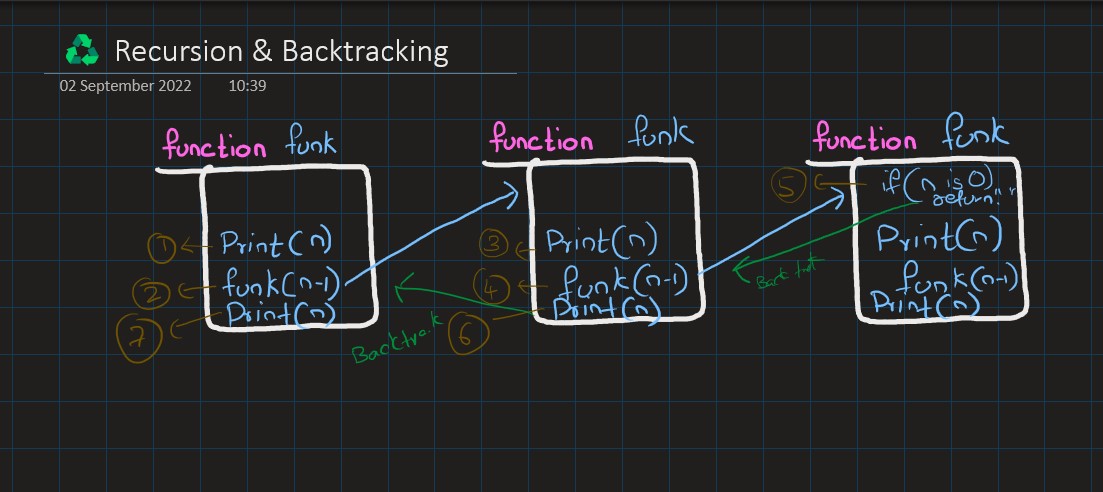 Recursion & Backtracking
02 September 2022 10:39
function funk
① Print(n)
② funk(n-1)
⑦ Print(n)
Backtrack
function funk
③ Print(n)
④ funk(n-1)
⑥ Print(n)
function funk
⑤ if(n is 0)
return " "
Print(n)
funk(n-1)
Print(n)